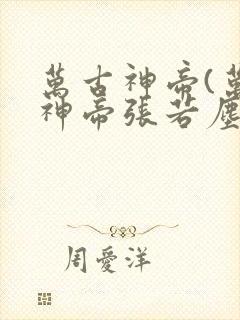 萬古神帝(萬
神帝張若塵
周愛洋